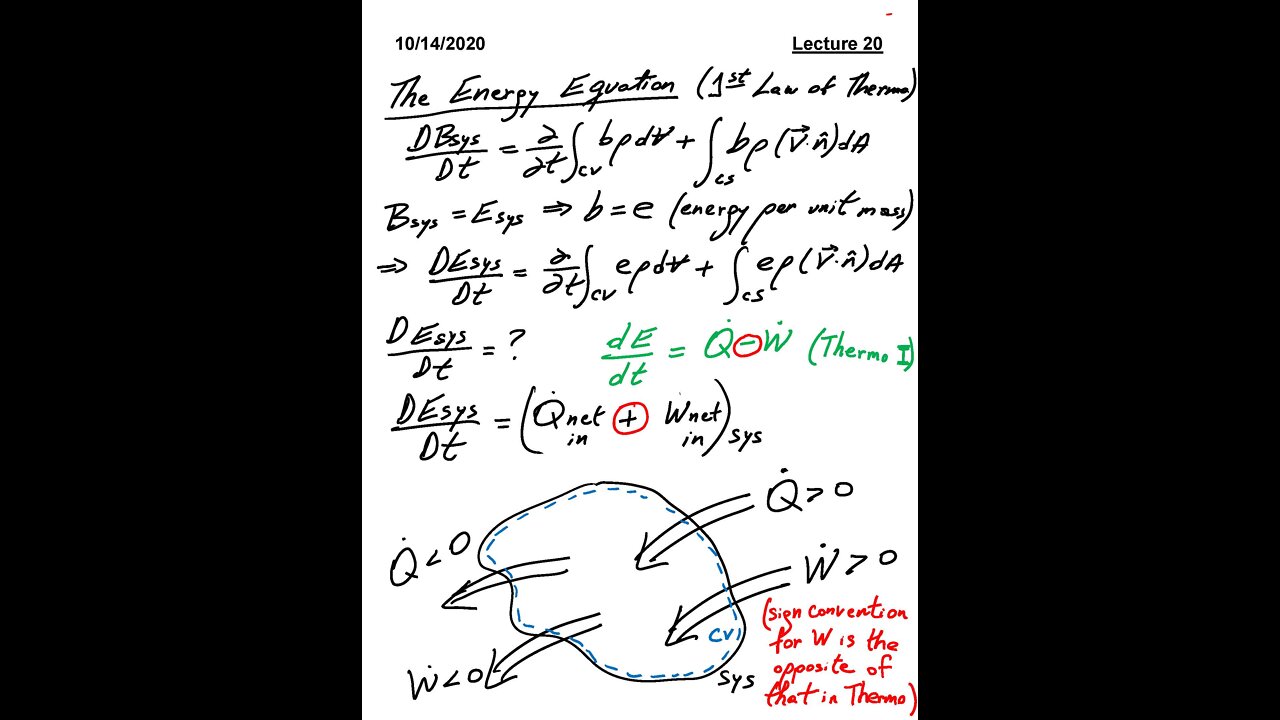 10/14/2020 Lecture 20
The Energy Equation (1st Law of Thermo)
DBsys/Dt = ∂/∂t ∫cv bρdV + ∫cs bρ(V⃗·n̂)dA
Bsys = Esys ⇒ b = e (energy per unit mass)
⇒ DEsys/Dt = ∂/∂t ∫cv eρdV + ∫cs eρ(V⃗·n̂)dA
DEsys/Dt = ? dE/dt = Q̇ − Ẇ (Thermo I)
DEsys/Dt = (Q̇net in + Ẇnet in)sys
Q̇ > 0
Q̇ < 0
Ẇ > 0
(sign convention
for W is the
opposite of
that in Thermo)
cv
Ẇ < 0
sys